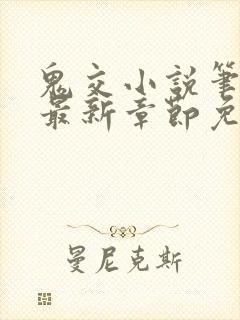 鬼交小説筆
最新章節免
曼尼克斯